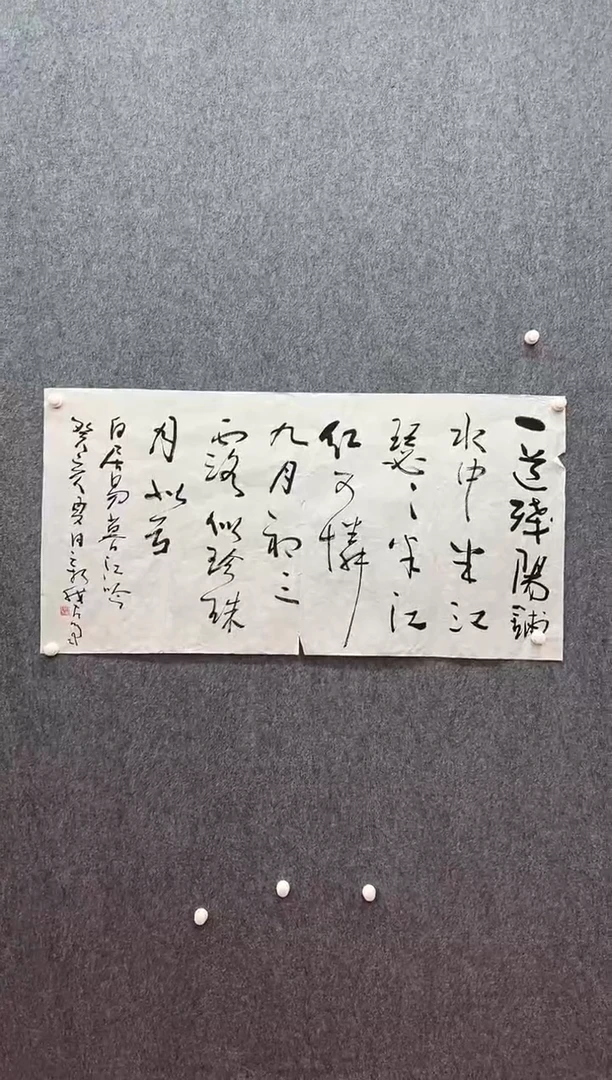 一道残陽鋪
水中半江
瑟々半江
红可憐
九月初三
露似珍珠
月似弓
白居易暮江吟
癸卯夏日